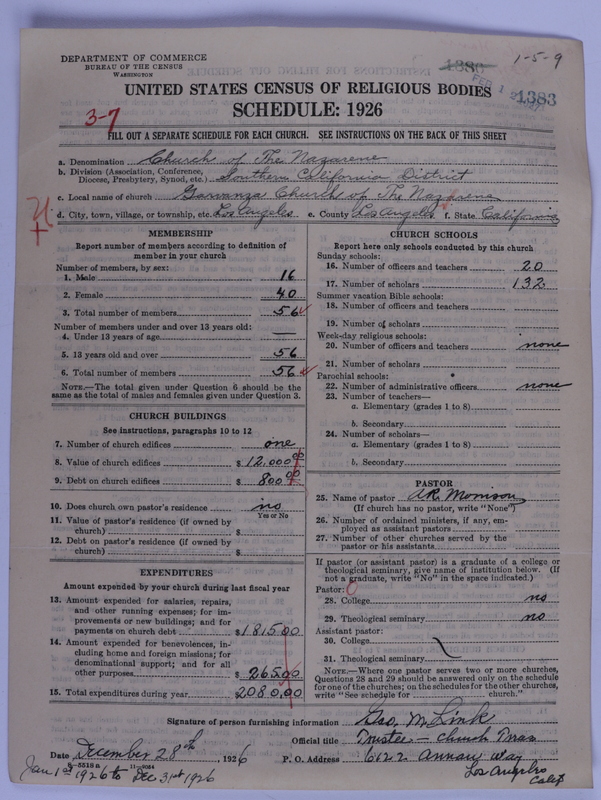 DEPARTMENT OF COMMERCE
BUREAU OF THE CENSUS
WASHINGTON
1380
1-5-9
FEB 1 2
1383
UNITED STATES CENSUS OF RELIGIOUS BODIES
SCHEDULE: 1926
3-7
FILL OUT A SEPARATE SCHEDULE FOR EACH CHURCH. SEE INSTRUCTIONS ON THE BACK OF THIS SHEET
a. Denomination Church of The Nazarene
b. Division (Association, Conference, Diocese, Presbytery, Synod, etc.) Southern California District
c. Local name of church Garvanza Church of The Nazarene
d. City, town, village, or township, etc. Los Angeles e. County Los Angeles f. State California
MEMBERSHIP
Report number of members according to definition of
member in your church
Number of members, by sex:
1. Male 16
2. Female 40
3. Total number of members 56
Number of members under and over 13 years old:
4. Under 13 years of age —
5. 13 years old and over 56
6. Total number of members 56
NOTE.—The total given under Question 6 should be the
same as the total of males and females given under Question 3.
CHURCH BUILDINGS
See instructions, paragraphs 10 to 12
7. Number of church edifices one
8. Value of church edifices $ 12,000.00
9. Debt on church edifices $ 800.00
10. Does church own pastor's residence no
Yes or No
11. Value of pastor's residence (if owned by
church) $
12. Debt on pastor's residence (if owned by
church) $
EXPENDITURES
Amount expended by your church during last fiscal year
13. Amount expended for salaries, repairs,
and other running expenses; for im-
provements or new buildings; and for
payments on church debt $ 1815.00
14. Amount expended for benevolences, in-
cluding home and foreign missions; for
denominational support; and for all
other purposes $ 265.00
15. Total expenditures during year 2080.00
CHURCH SCHOOLS
Report here only schools conducted by this church
Sunday schools:
16. Number of officers and teachers 20
17. Number of scholars 132
Summer vacation Bible schools:
18. Number of officers and teachers
19. Number of scholars
Week-day religious schools:
20. Number of officers and teachers none
21. Number of scholars
Parochial schools:
22. Number of administrative officers none
23. Number of teachers—
a. Elementary (grades 1 to 8)
b. Secondary
24. Number of scholars—
a. Elementary (grades 1 to 8)
b. Secondary
PASTOR
25. Name of pastor A.R. Morrison
(If church has no pastor, write "None")
26. Number of ordained ministers, if any, em-
ployed as assistant pastors
27. Number of other churches served by the
pastor or his assistants
If pastor (or assistant pastor) is a graduate of a college or
theological seminary, give name of institution below. (If
not a graduate, write "No" in the space indicated.)
Pastor: 0
28. College no
29. Theological seminary no
Assistant pastor:
30. College
31. Theological seminary
NOTE.—Where one pastor serves two or more churches,
Questions 28 and 29 should be answered only on the schedule
for one of the churches; on the schedules for the other churches,
write "See schedule for church."
Signature of person furnishing information Geo. M. Link
Official title Trustee — Church Treas
Date December 28th, 1926 P. O. Address 6122 Annan Way
Los Angeles
Calif
8-5518 a 11-9084
Jan 1st 1926 to Dec 31st 1926